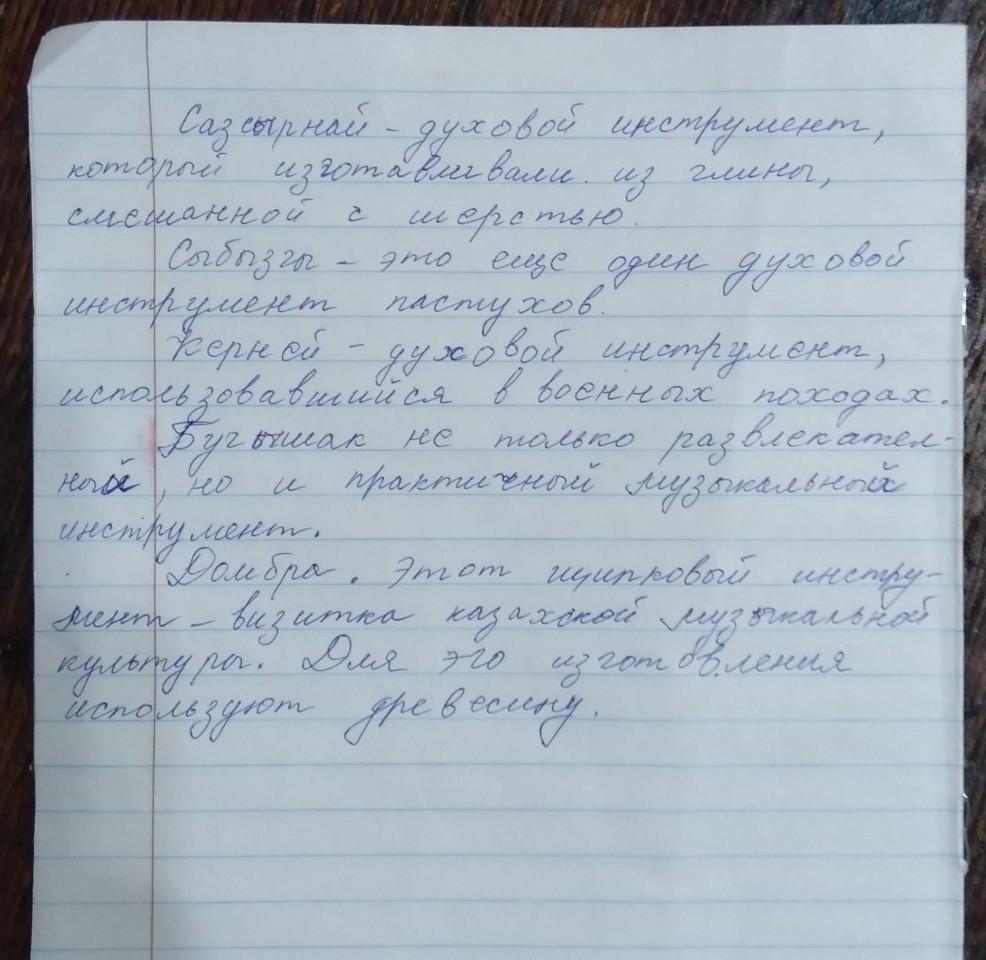 Сазсырнай - духовой инструмент,
который изготавливали из глины,
смешанной с шерстью.
Сыбызгы - это еще один духовой
инструмент пастухов.
Керней - духовой инструмент,
использовавшийся в военных походах.
Бугышак не только развлекател-
ный, но и практичный музыкальный
инструмент.
Домбра. Этот щипковый инстру-
мент - визитка казахской музыкальной
культуры. Для эго изготовления
используют древесину.